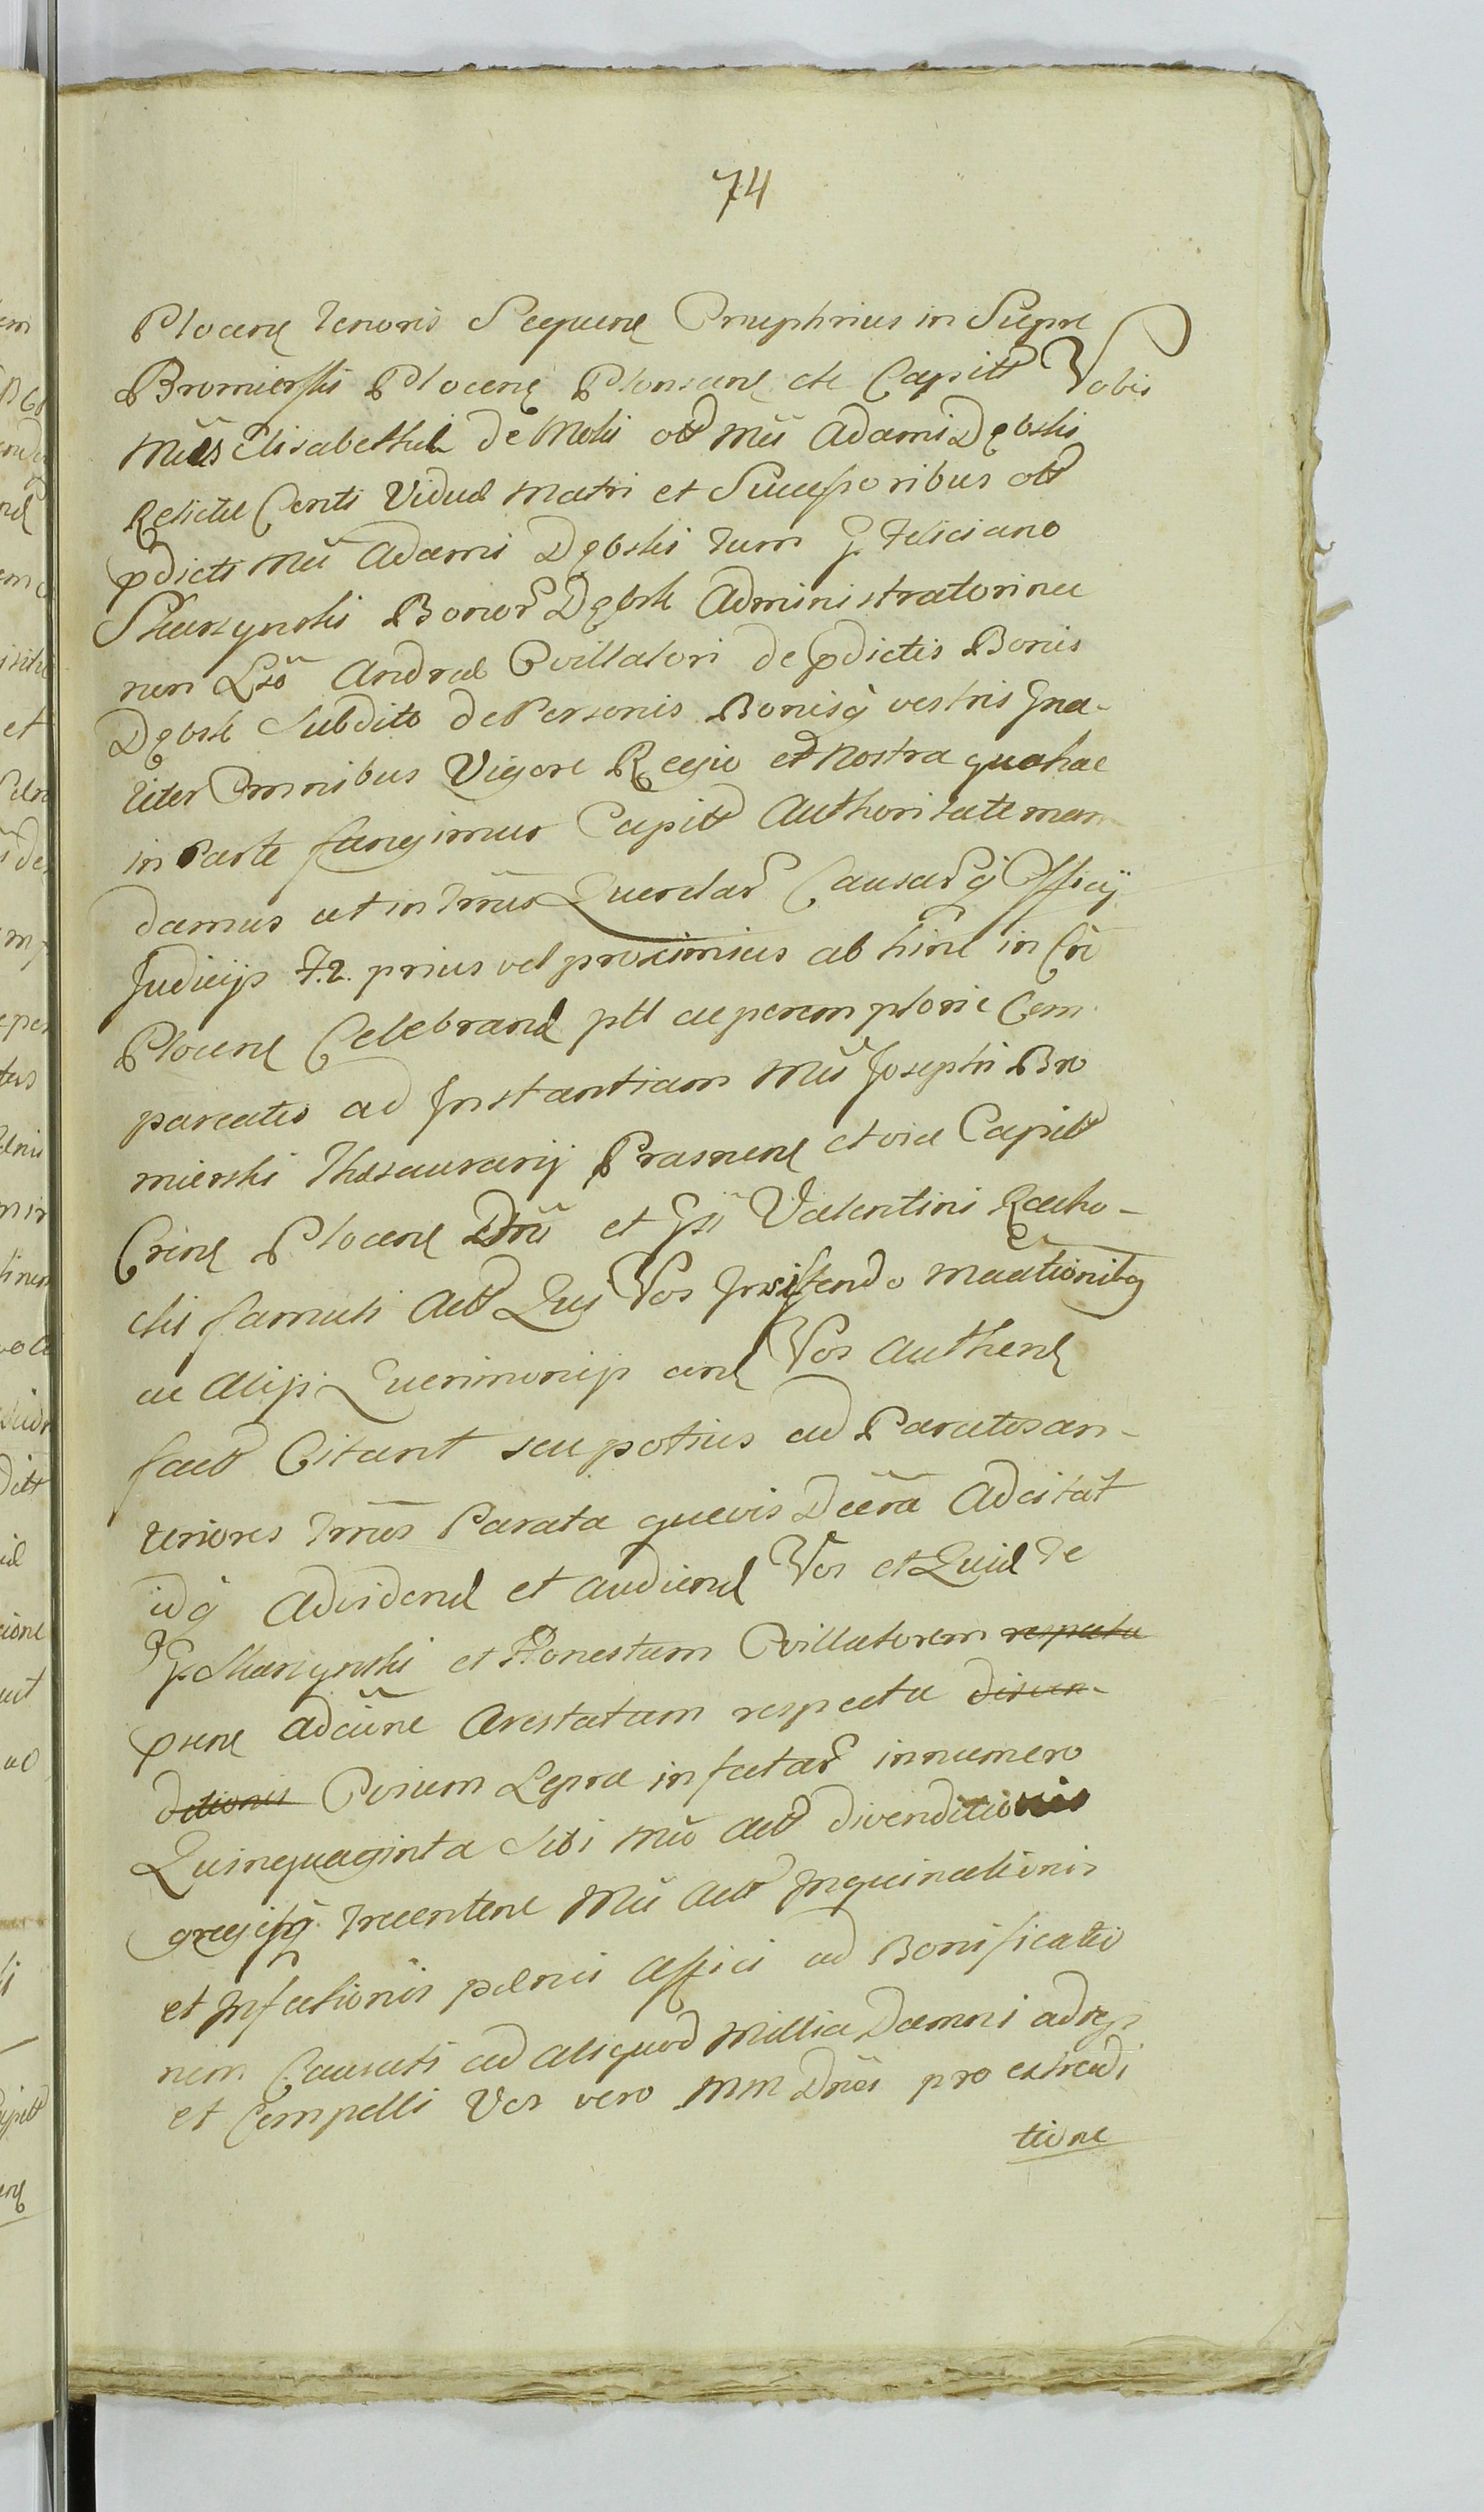 74
Plocens tenoris Sequens Onuphrius in Supre
Bromierski Plocens Plonsens etc Capitt Vobis
Mtis Elisabethae de Mokis ott Mti Adami Dębski
Relictae Conti Viduae Matri et Successoribus ott
pdicti Mti Adami Dębski tum G Feliciano
Skarzynski Bonor Dębsk Administratori nec
non Lso Andreae Ovillatori de pdictis Bonis
Dębsk Subdito de Personis Bonisq vestris Gna-
liter Omnibus Vigore Regio et Nostra qua hac
in Parte fungimur Capitt Authoritate man-
damus ut in Trnis Querelar Causarq Officij
Judicijs F. 2. prius vel proximius ab hinc in Cri
Plocens Celebrand ptt ac peremptorie Com
pareatis ad Instantiam Mti Josephi Bro
mierski Thesaurarij Prasnens et vice Capitt
Crens Plocens Dni et Gsi Valentini Racho-
cki famuli Actt Qui Vos Insistendo Mtationibq
ac Alijs Querimonijs cons Vos Authens
fact Citant seu potius ad Paratos an-
teriores Trnos Parata quevis Decra Adcitat
idq Advidend et audiend Vos et Quid te
G Skarzynski et Honestum Ovillatorem respectu
psens adcune Arestatum respectu disven-
ditionis Ovium Lepra infectar in numero
Quinquaginta Sibi Mto Actt divenditionis
gregisq Trecenten Mti Actt Inquinationis
et Infectionis paenis affici ad Bonificatio
nem Causati ad aliquod Millia Damni adigi
et Compelli Vos vero MM Dnos pro extradi
tione